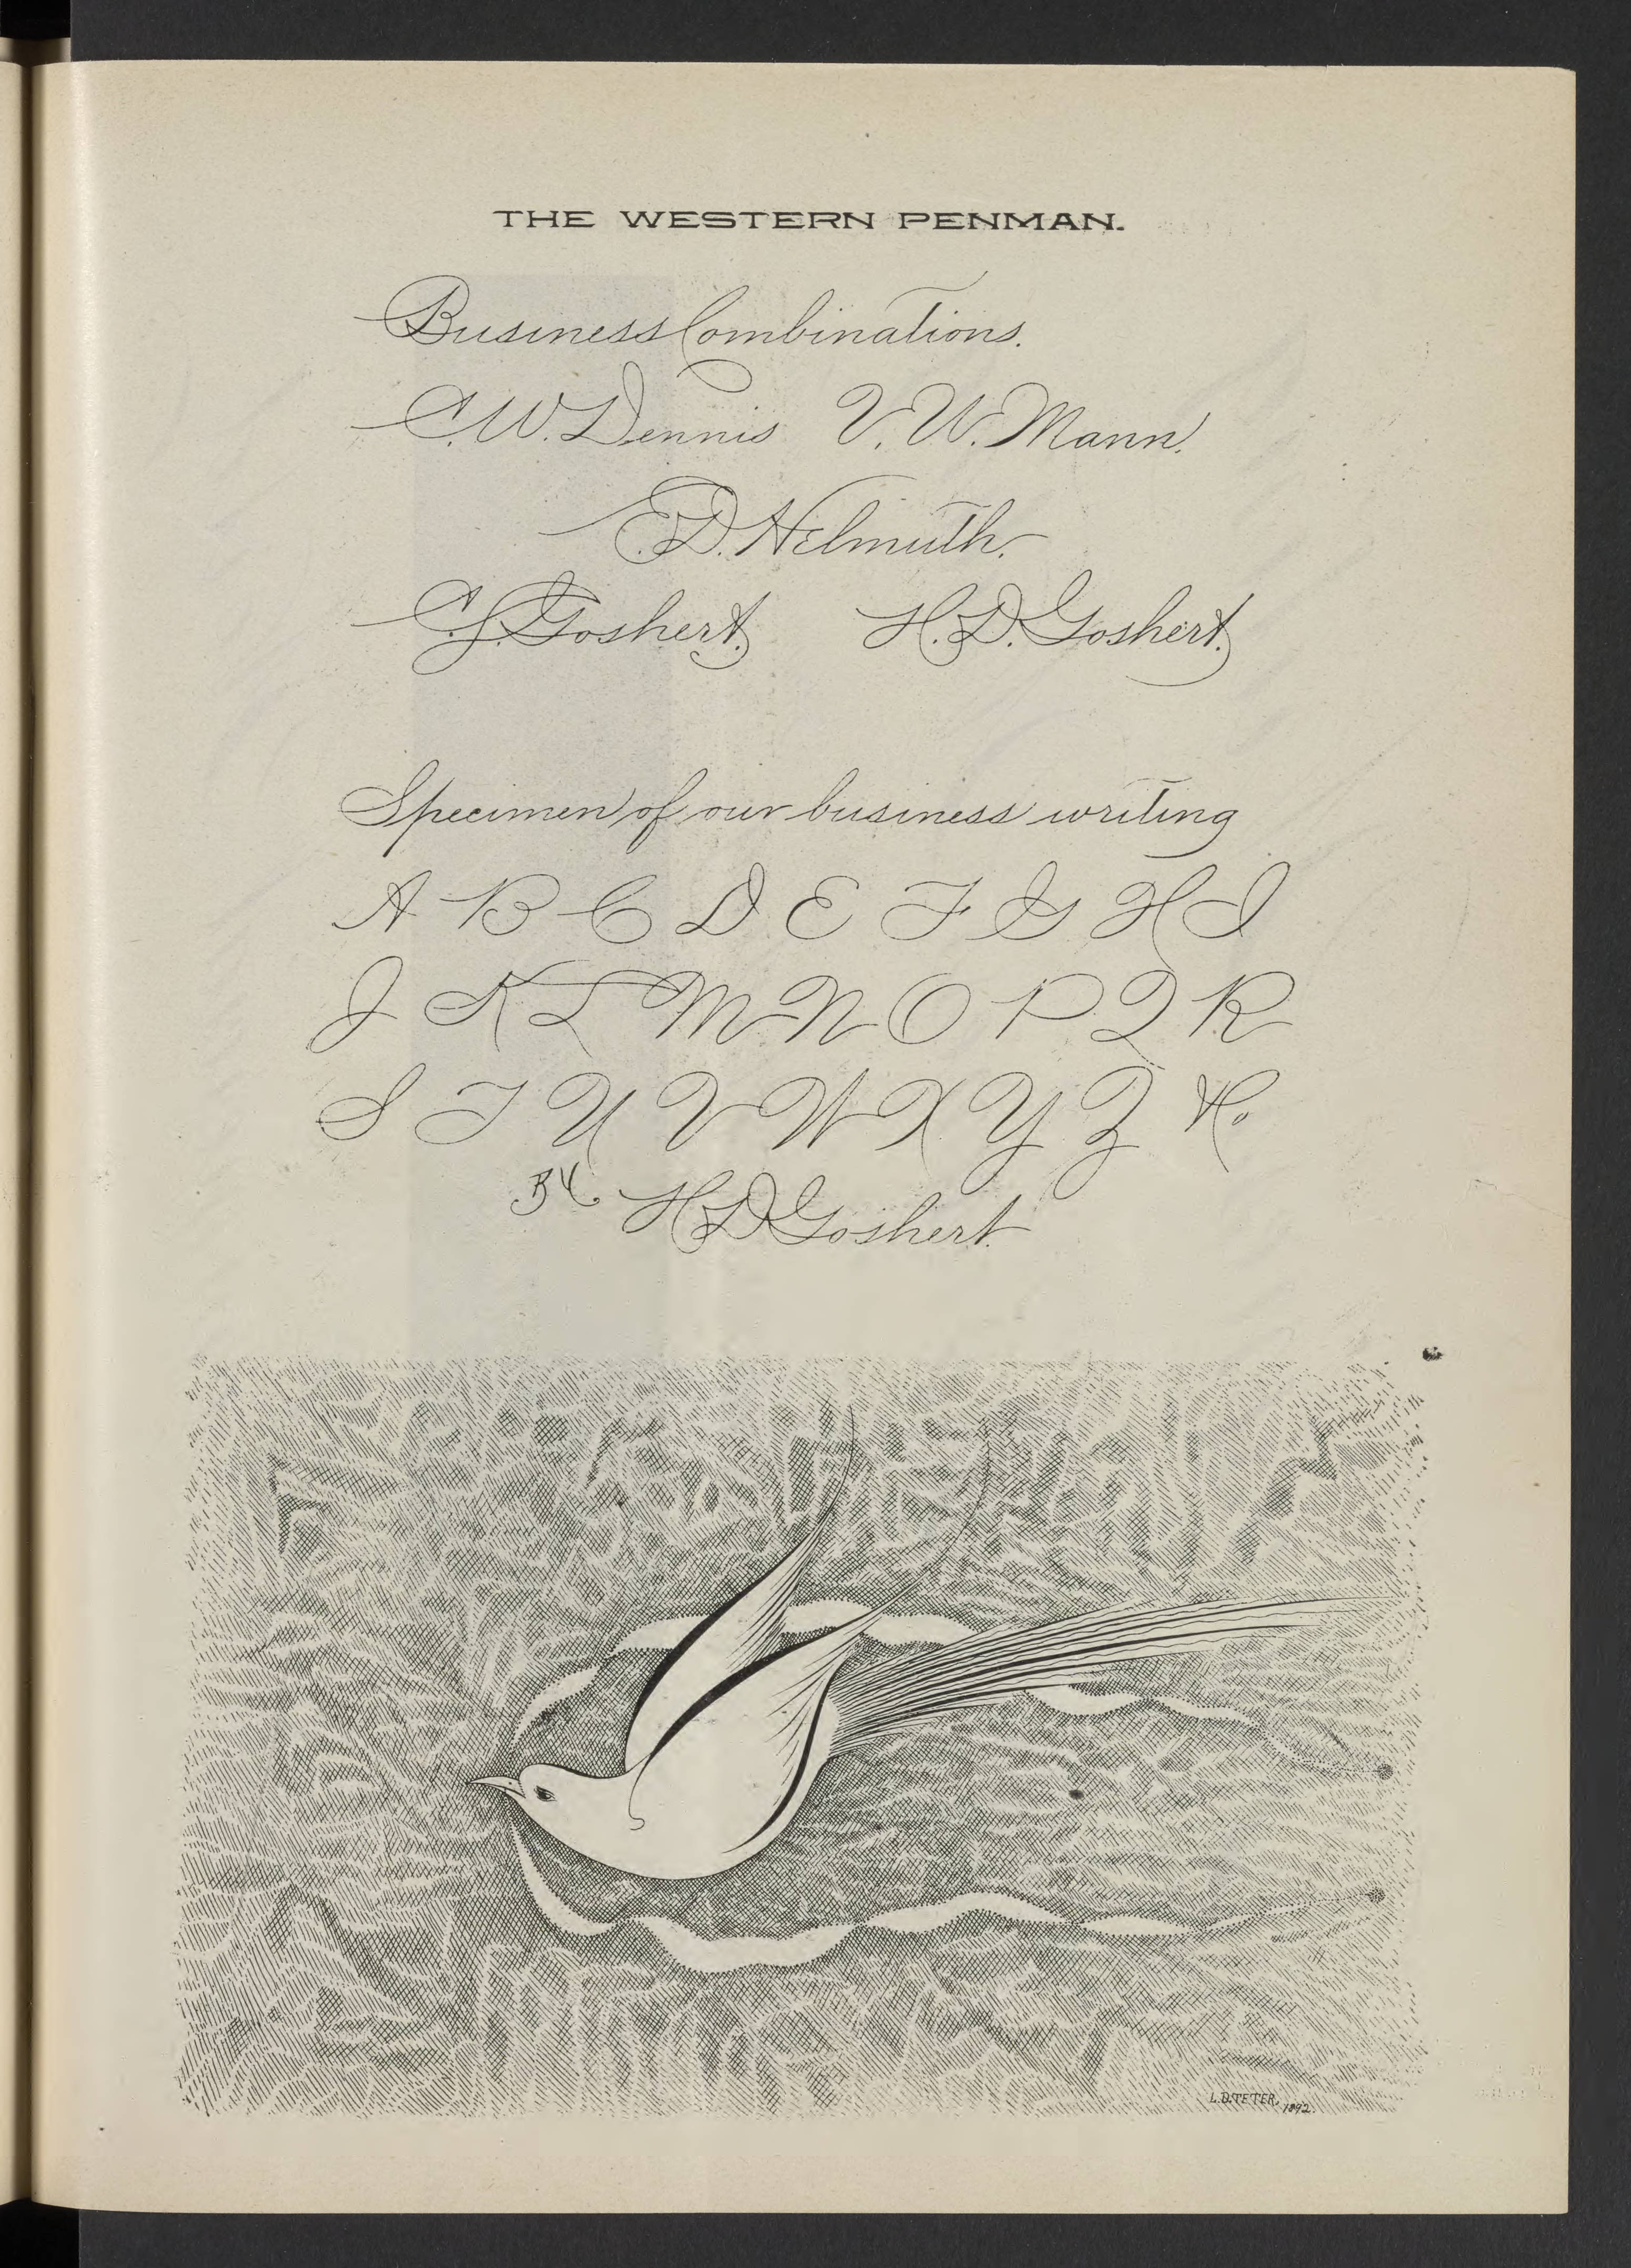 THE WESTERN PENMAN.
Business Combinations.
C. W. Dennis V. W. Mann.
E. D. Helmuth.
C. S. Goshert. H. D. Goshert.
Specimen of our business writing
A B C D E F G H I
J K L M N O P Q R
S T U V W X Y Z &.
BY H D Goshert.
L. D. TETER, 1892.